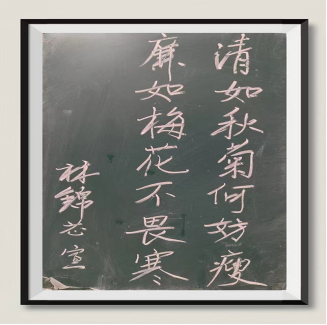 清如秋菊何妨瘦
廉如梅花不畏寒
林錦芯宣